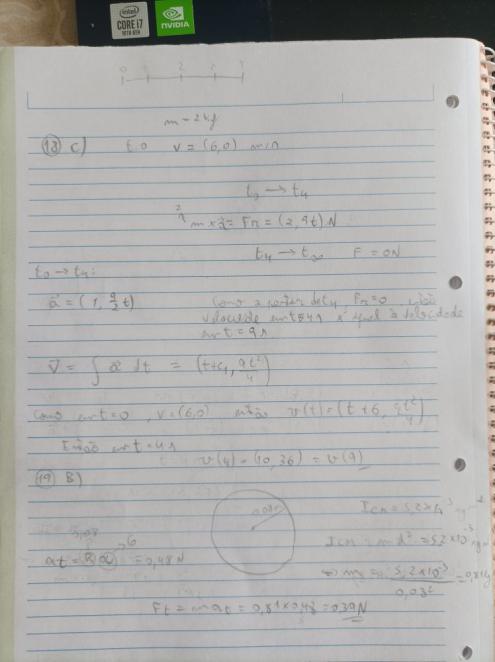 intel
CORE i7
10TH GEN
NVIDIA
m = 2 kg
(18) c) t=0 v = (6,0) m/s
t₀ → t₄
m × a⃗ = FR = (2, 9t) N
t₄ → t∞ F = 0N
t₀ → t₄:
a⃗ = (1, 9/2 t)
Como a partir de t₄, FR = 0, então
velocidade em t=4s é igual à velocidade
em t = 9s
v⃗ = ∫ a⃗ dt = (t+c₁, 9t²/4)
Como em t=0, v=(6,0) então v(t) = (t + 6, 9t²/4)
Então em t=4s
v(4) = (10, 36) = v(9)
(19) B)
Icm = 5,2×10⁻³ kg m²
at = Rα = 0,48N
6
Icm = md² = 5,2×10⁻³
m = 5,2×10⁻³ / 0,08² = 0,81kg
Ft = m at = 0,81×0,48 = 0,39N